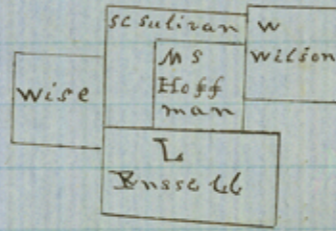 sc sulivan
W
Wilson
Wise
MS
Hoff
man
L
Russell